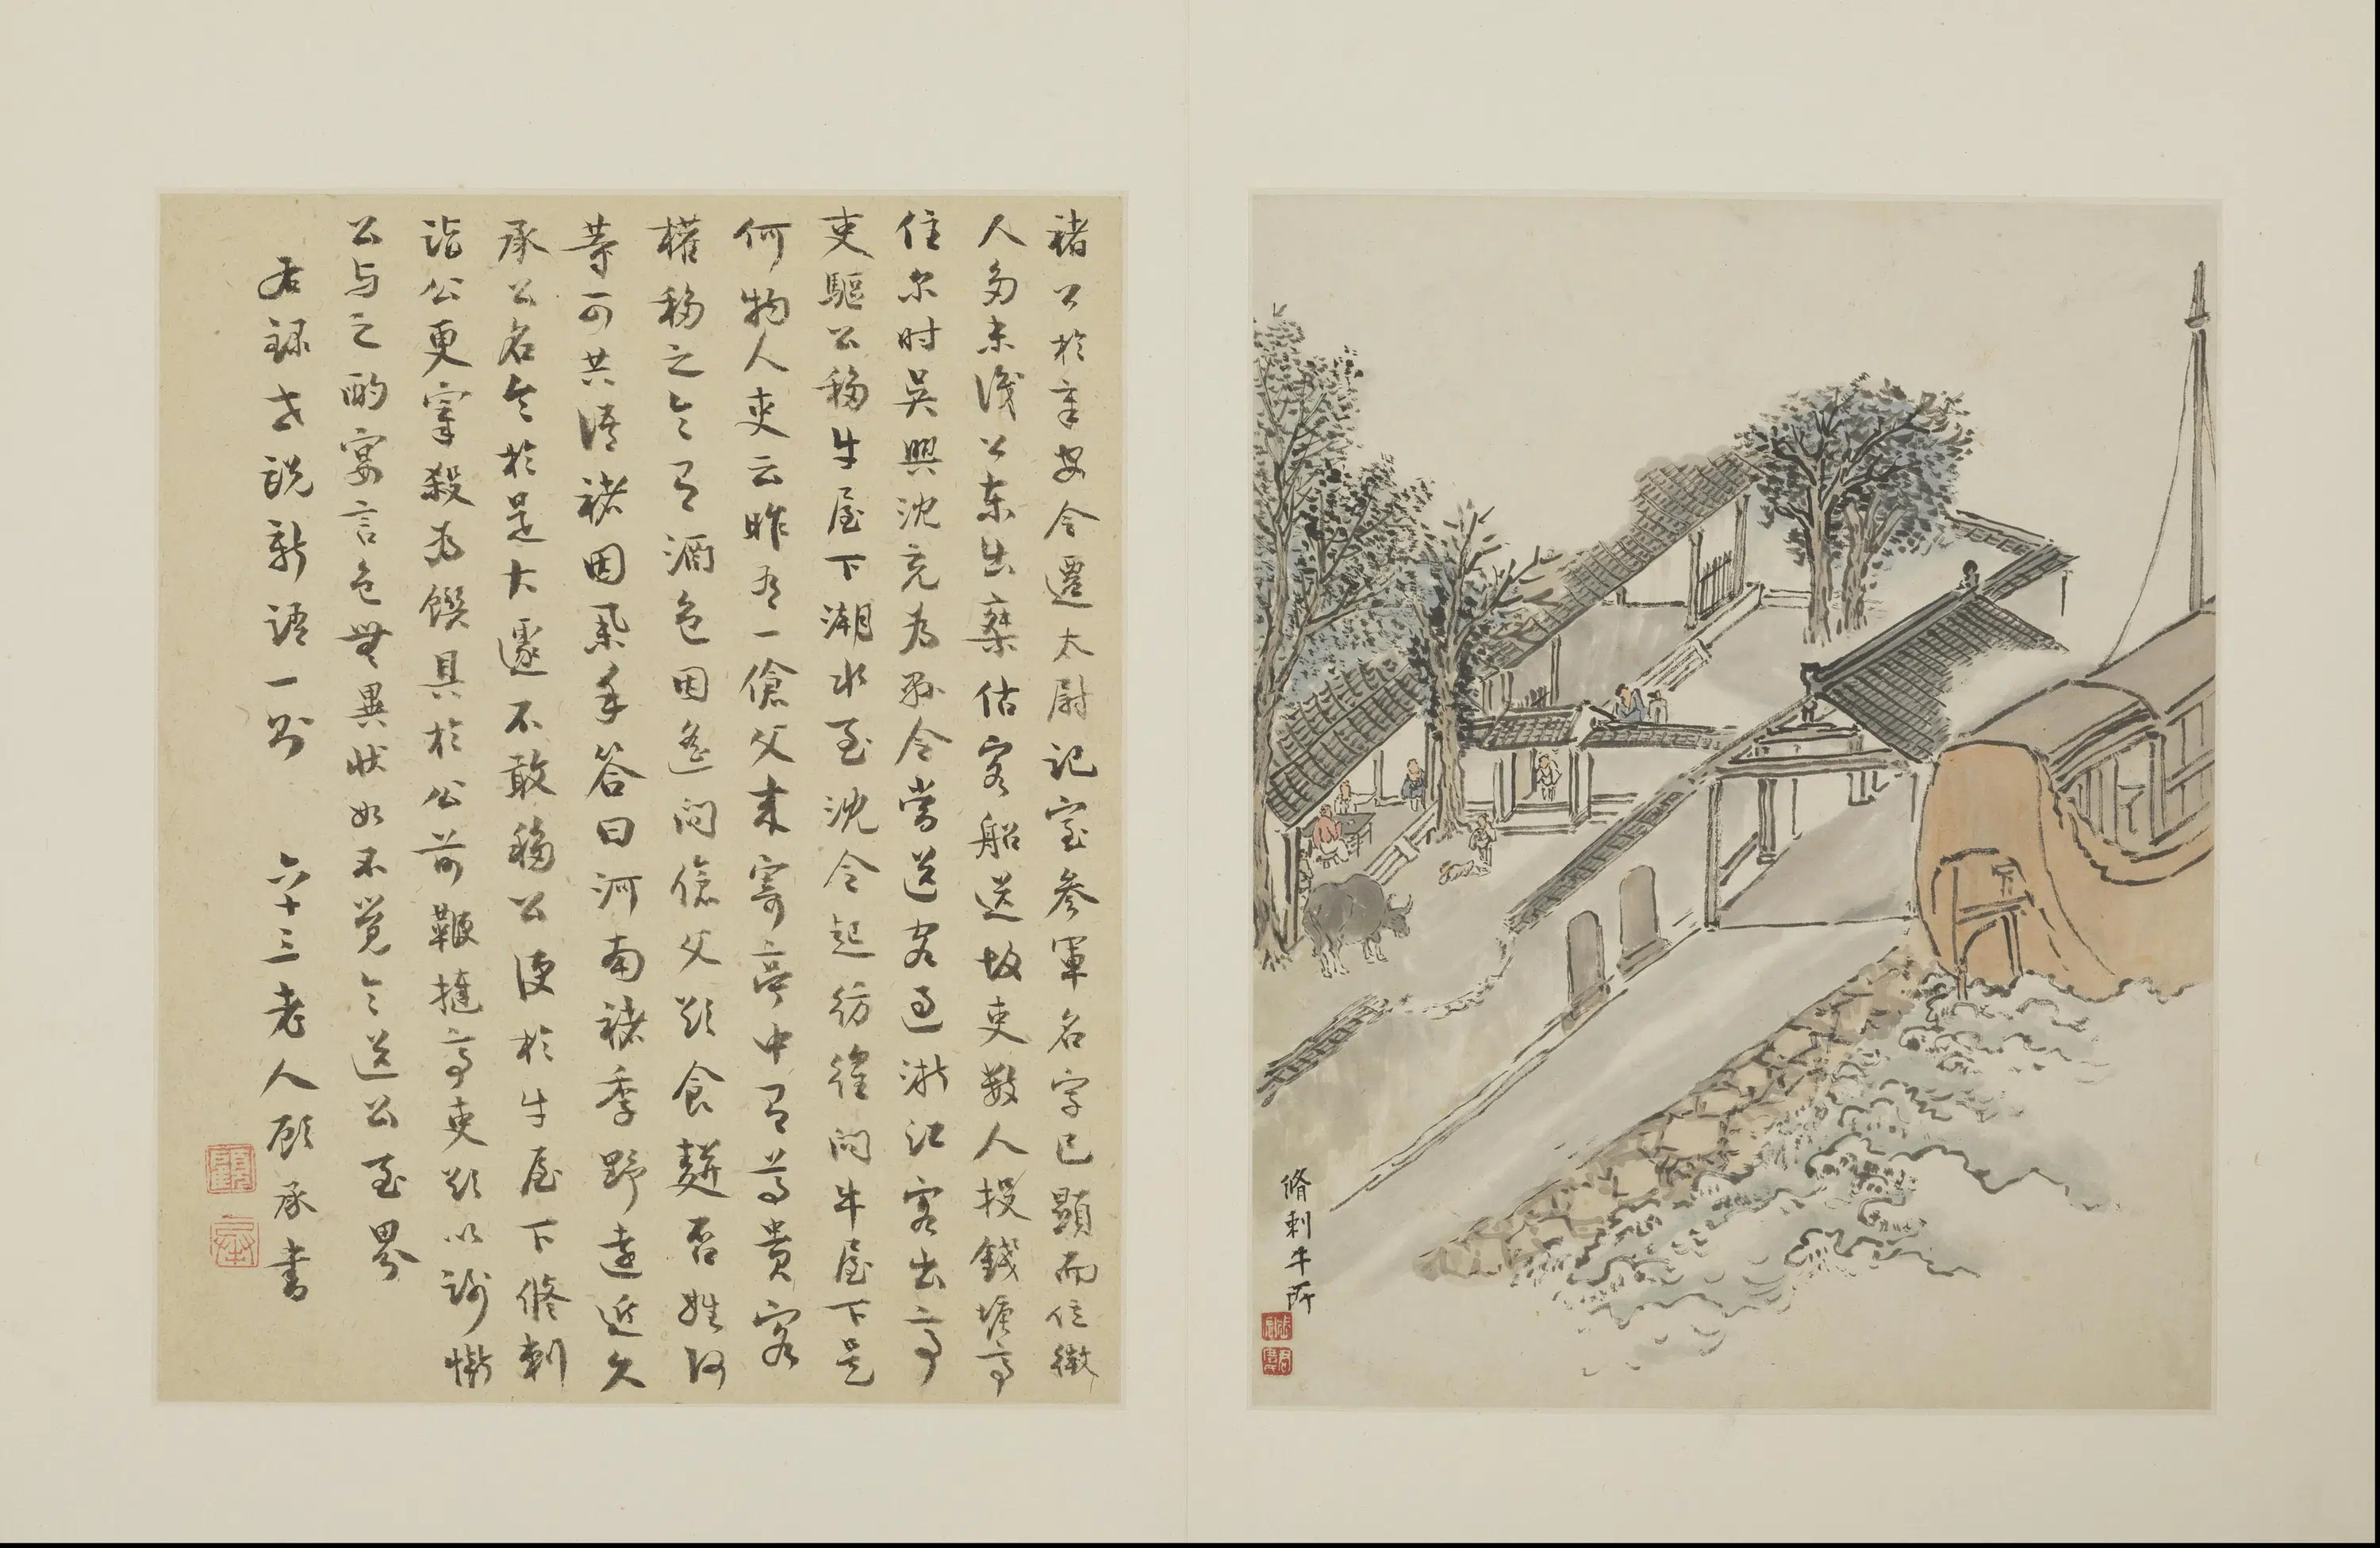 褚公於章安令遷太尉記室參軍名字已顯而位微
人多未識公東出乘估客船送故吏數人投錢塘亭
住尔时吳興沈充为縣令當送客過浙江客出亭
吏驅公移牛屋下潮水至沈令起彷徨問牛屋下是
何物人吏云昨有一傖父来寄亭中有尊貴客
權移之令有酒色因遙問傖父欲食䴵否姓何
等可共語褚因舉手答曰河南褚季野遠近久
承公名令於是大遽不敢移公便於牛屋下脩刺
詣公更宰殺为饌具於公前鞭撻亭吏欲以謝慚
公与之酌宴言色無異狀如不覺令送公至界
右錄世說新語一則 六十三老人顧承書
顧
承
脩刺牛所